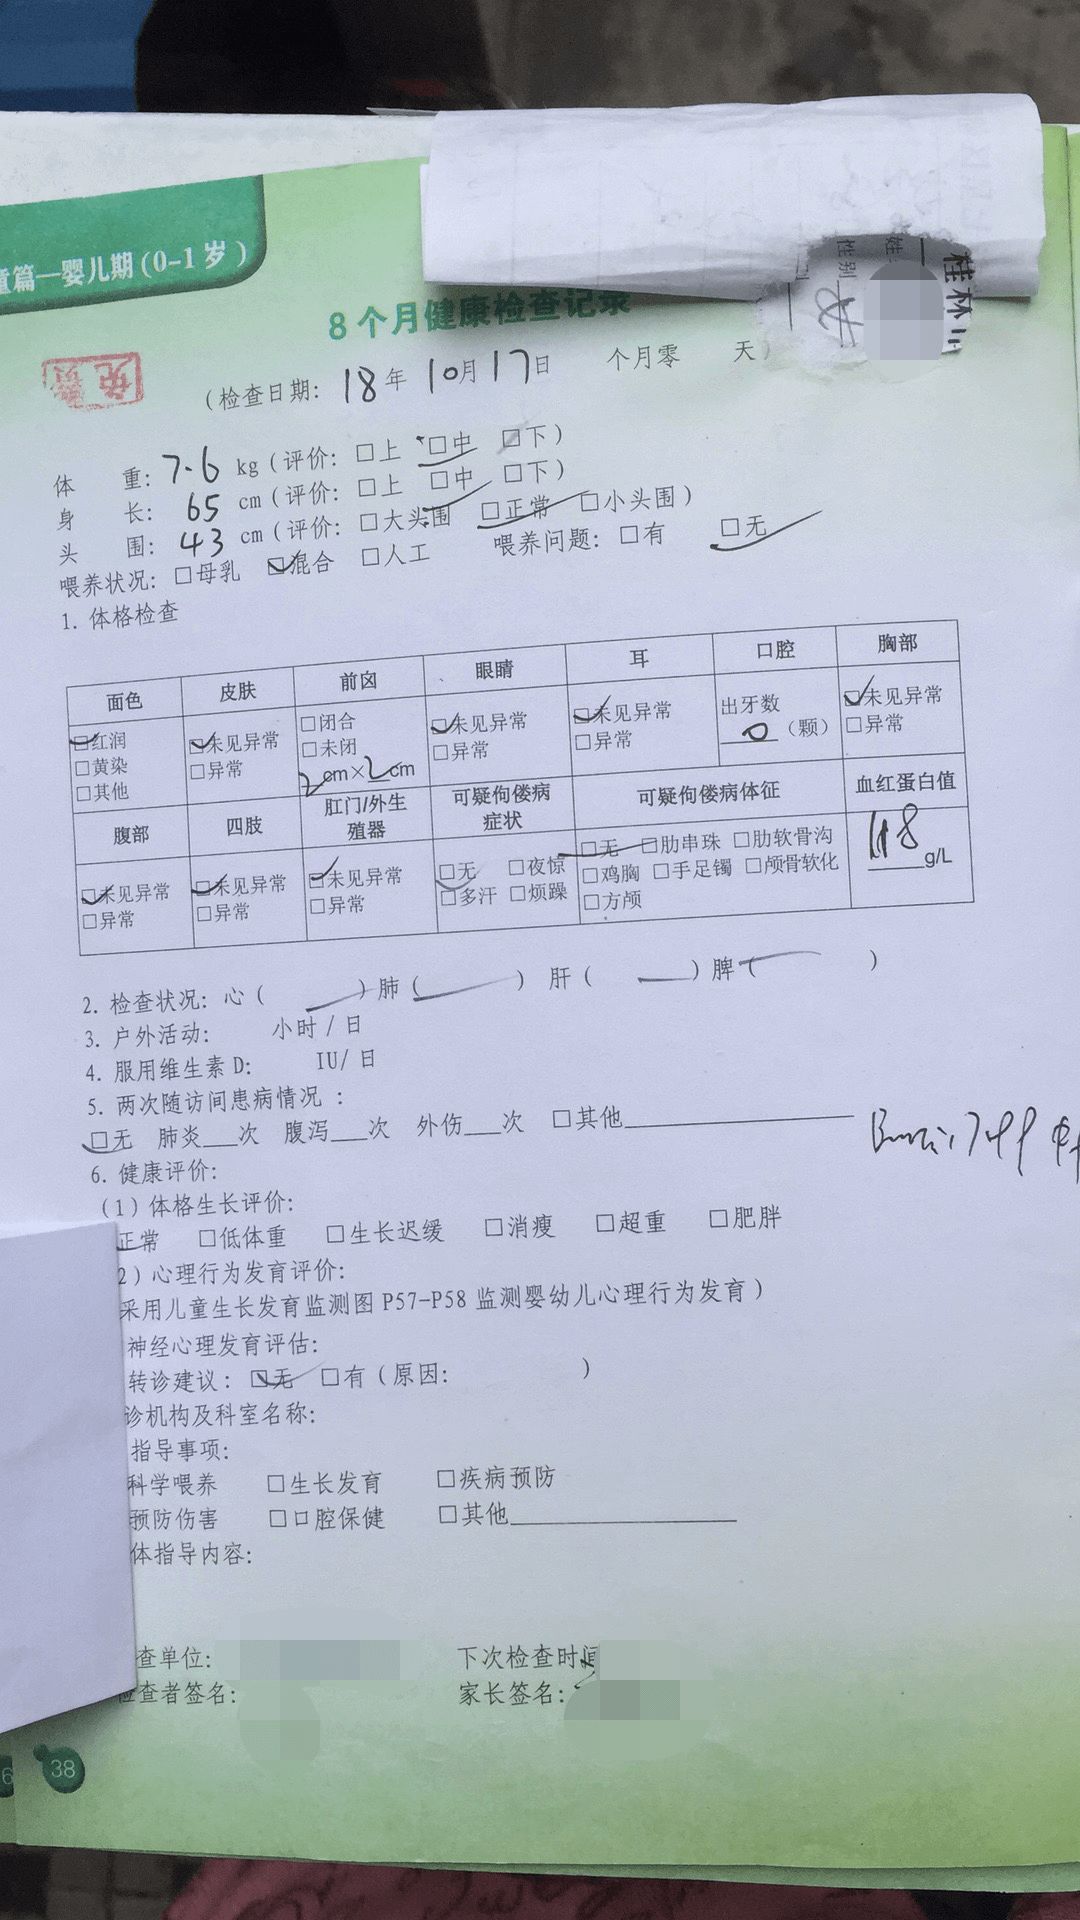 童篇—婴儿期(0-1岁)
桂林
姓
性别 女
8个月健康检查记录
免费
(检查日期: 18年 10月17日 个月零 天)
体 重: 7.6 kg(评价: □上 □中 □下)
身 长: 65 cm(评价: □上 □中 □下)
头 围: 43 cm(评价: □大头围 □正常 □小头围)
喂养状况: □母乳 □混合 □人工 喂养问题: □有 □无
1. 体格检查
面色 皮肤 前囟 眼睛 耳 口腔 胸部
□红润 □黄染 □其他
□未见异常 □异常
□闭合 □未闭 2cm×2cm
□未见异常 □异常
□未见异常 □异常
出牙数 0(颗)
□未见异常 □异常
腹部 四肢 肛门/外生殖器 可疑佝偻病症状 可疑佝偻病体征 血红蛋白值
□未见异常 □异常
□未见异常 □异常
□未见异常 □异常
□无 □夜惊 □多汗 □烦躁
□无 □肋串珠 □肋软骨沟 □鸡胸 □手足镯 □颅骨软化 □方颅
118 g/L
2. 检查状况: 心( ) 肺( ) 肝( ) 脾( )
3. 户外活动: 小时/日
4. 服用维生素D: IU/日
5. 两次随访间患病情况:
□无 肺炎___次 腹泻___次 外伤___次 □其他
6. 健康评价:
(1)体格生长评价:
正常 □低体重 □生长迟缓 □消瘦 □超重 □肥胖
2)心理行为发育评价:
采用儿童生长发育监测图 P57-P58 监测婴幼儿心理行为发育)
神经心理发育评估:
转诊建议: □无 □有(原因: )
诊机构及科室名称:
指导事项:
科学喂养 □生长发育 □疾病预防
预防伤害 □口腔保健 □其他
体指导内容:
查单位: 下次检查时间
检查者签名: 家长签名:
6 38